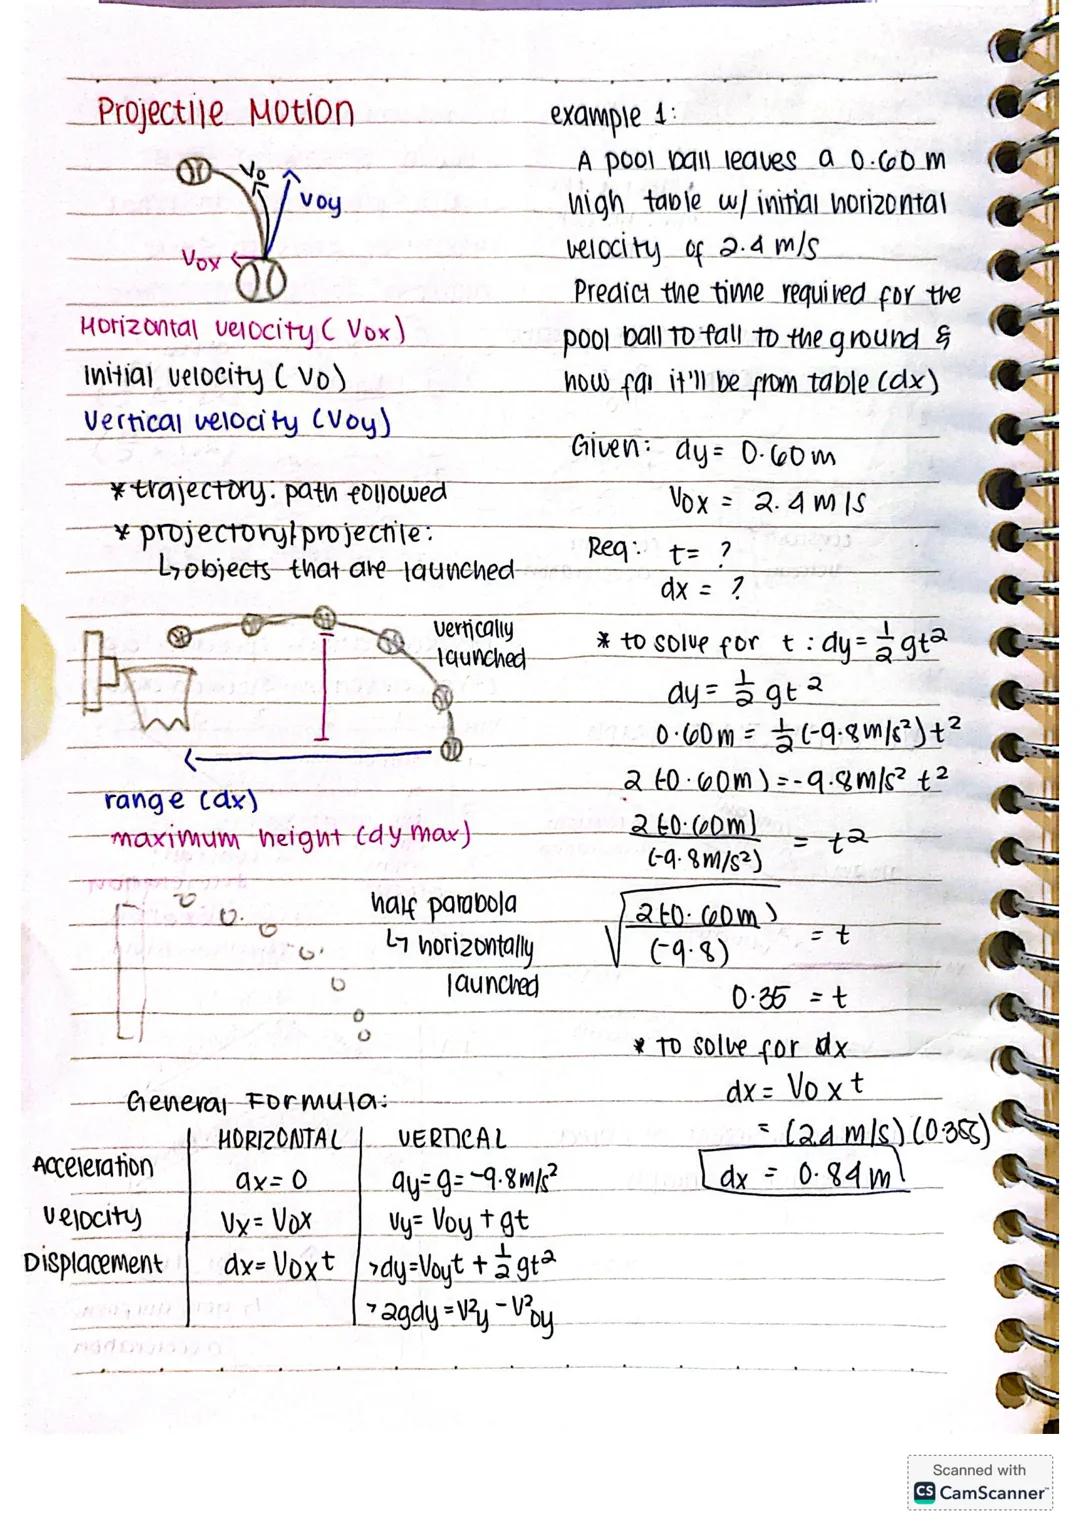 Projectile Motion
Vo
Voy
Vox
Horizontal velocity ( Vox )
Initial velocity ( Vo )
Vertical velocity (Voy)
* trajectory: path followed
* projectory/projectile:
↳ objects that are launched
vertically
launched
range (dx)
maximum height (dy max)
half parabola
↳ horizontally
launched
General Formula:
HORIZONTAL | VERTICAL
Acceleration | ax = 0 | ay = g = -9.8 m/s²
Velocity | Vx = Vox | Vy = Voy + gt
Displacement | dx = Voxt | > dy = Voyt + 1/2 gt²
> 2gdy = V²y - V²oy
example 1:
A pool ball leaves a 0.60 m
high table w/ initial horizontal
velocity of 2.4 m/s
Predict the time required for the
pool ball to fall to the ground &
how far it'll be from table (dx)
Given: dy = 0.60 m
Vox = 2.4 m/s
Req: t = ?
dx = ?
* to solve for t : dy = 1/2 gt²
dy = 1/2 gt²
0.60m = 1/2 (-9.8 m/s²) t²
2 (-0.60m) = -9.8 m/s² t²
2 (-0.60m) / (-9.8 m/s²) = t²
√ 2 (-0.60m) / (-9.8) = t
0.35 = t
* To solve for dx
dx = Vo x t
= (2.4 m/s) (0.35s)
dx = 0.84 m
Scanned with
CS CamScanner